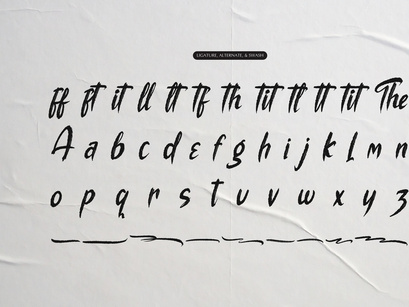 LIGATURE, ALTERNATE, & SWASH
ff ft it ll lt tf th tit tl tt tit The
A a b c d e f g h i j k l m n
o p q r s t u v w x y z